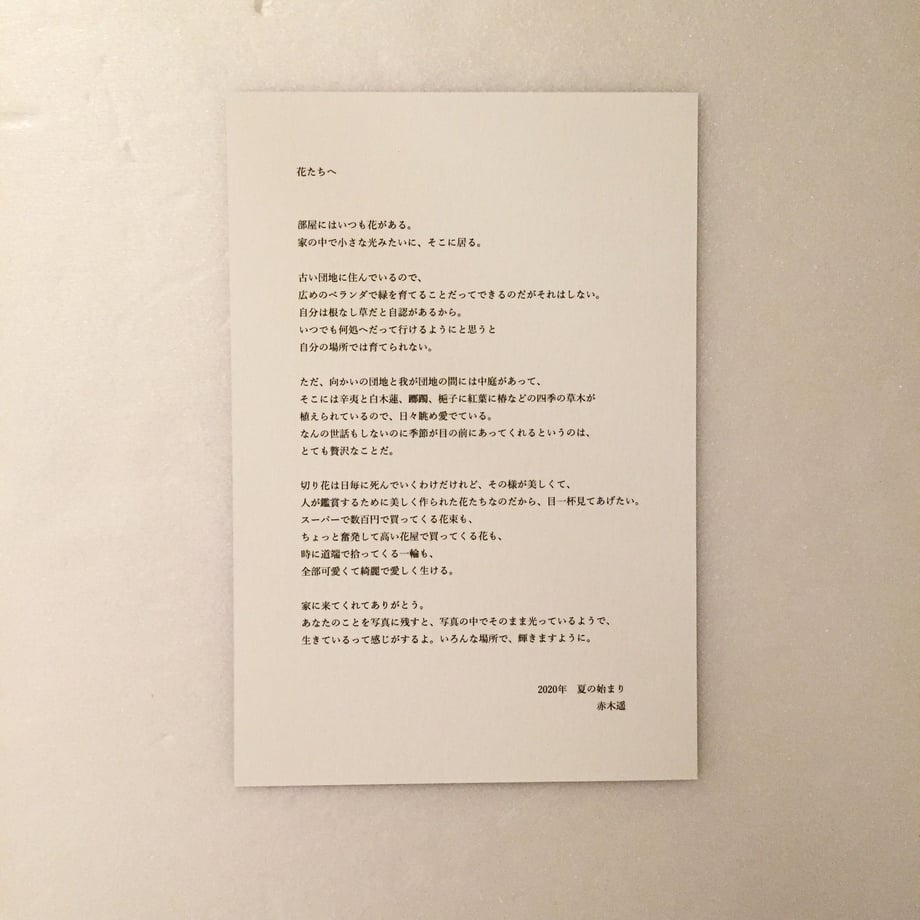 花たちへ
部屋にはいつも花がある。
家の中で小さな光みたいに、そこに居る。
古い団地に住んでいるので、
広めのベランダで緑を育てることだってできるのだがそれはしない。
自分は根なし草だと自認があるから。
いつでも何処へだって行けるようにと思うと
自分の場所では育てられない。
ただ、向かいの団地と我が団地の間には中庭があって、
そこには辛夷と白木蓮、躑躅、梔子に紅葉に椿などの四季の草木が
植えられているので、日々眺め愛でている。
なんの世話もしないのに季節が目の前にあってくれるというのは、
とても贅沢なことだ。
切り花は日毎に死んでいくわけだけれど、その様が美しくて、
人が鑑賞するために美しく作られた花たちなのだから、目一杯見てあげたい。
スーパーで数百円で買ってくる花束も、
ちょっと奮発して高い花屋で買ってくる花も、
時に道端で拾ってくる一輪も、
全部可愛くて綺麗で愛しく生ける。
家に来てくれてありがとう。
あなたのことを写真に残すと、写真の中でそのまま光っているようで、
生きているって感じがするよ。いろんな場所で、輝きますように。
2020年　夏の始まり
赤木遥